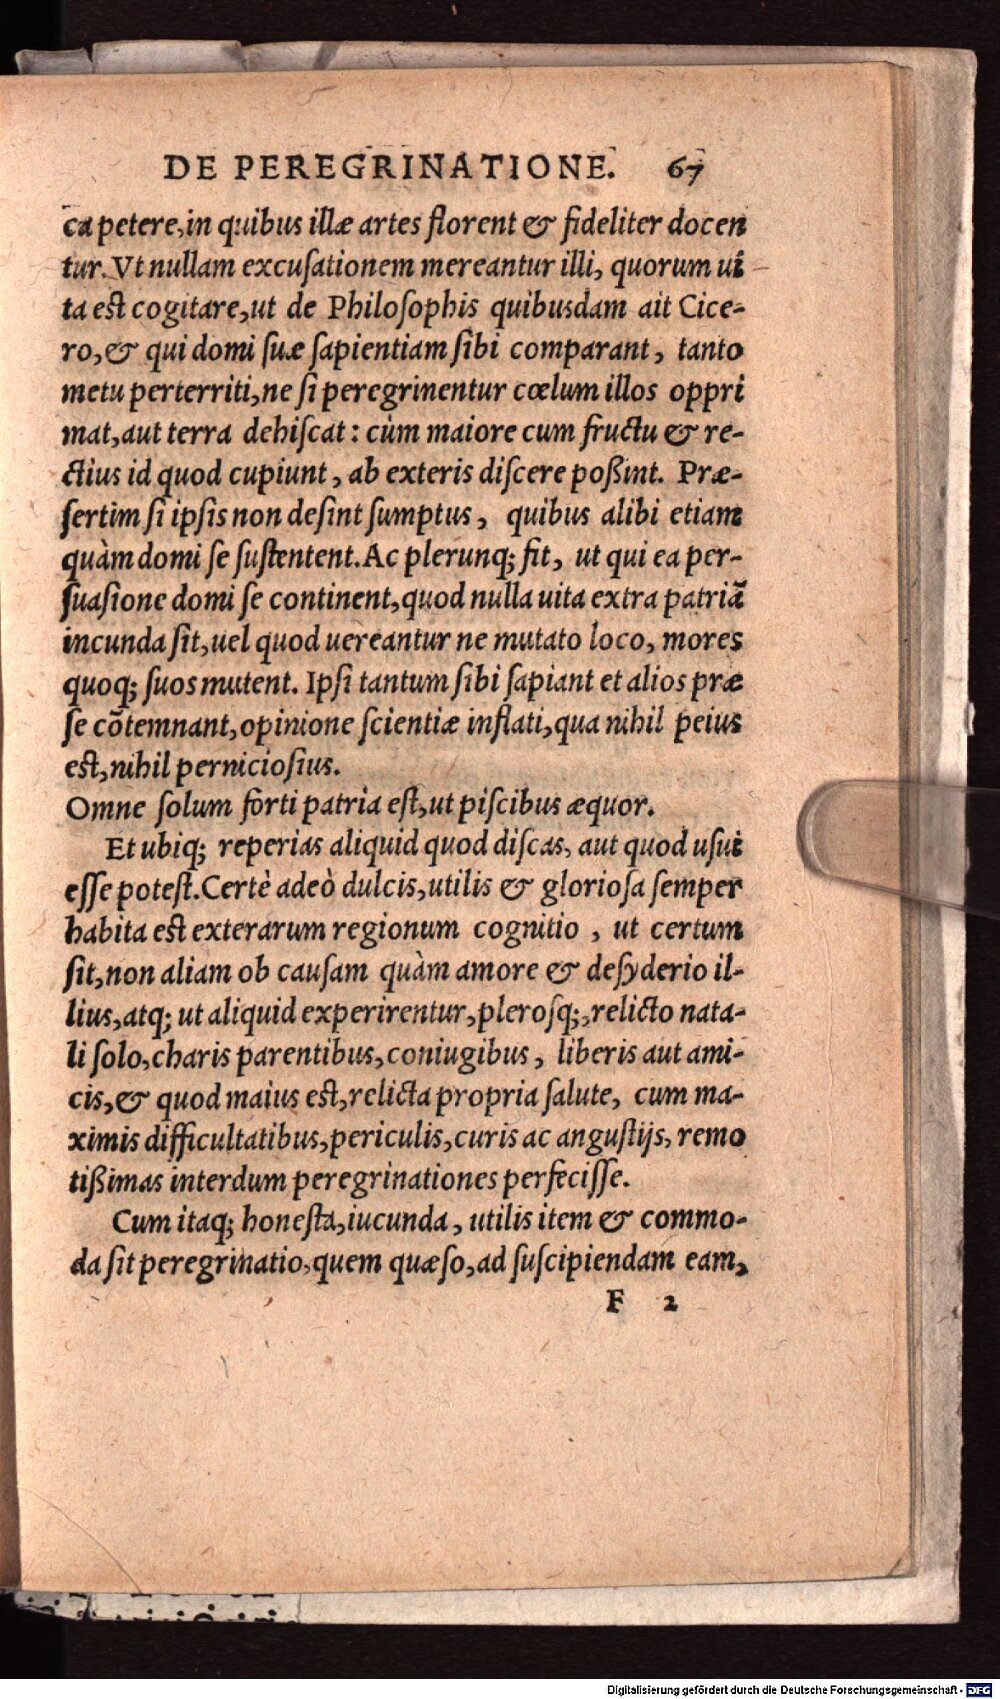 DE PEREGRINATIONE. 67
ca petere, in quibus illæ artes florent & fideliter docen
tur. Vt nullam excuſationem mereantur illi, quorum ui
ta eſt cogitare, ut de Philoſophis quibusdam ait Cice-
ro, & qui domi ſuæ ſapientiam ſibi comparant, tanto
metu perterriti, ne ſi peregrinentur cœlum illos oppri
mat, aut terra dehiſcat: cùm maiore cum fructu & re-
ctius id quod cupiunt, ab exteris diſcere poßint. Præ-
ſertim ſi ipſis non deſint ſumptus, quibus alibi etiam
quàm domi ſe ſuſtentent. Ac plerunq; fit, ut qui ea per-
ſuaſione domi ſe continent, quod nulla uita extra patriã
incunda ſit, uel quod uereantur ne mutato loco, mores
quoq; ſuos mutent. Ipſi tantum ſibi ſapiant et alios præ
ſe cõtemnant, opinione ſcientiæ inflati, qua nihil peius
eſt, nihil pernicioſius.
Omne ſolum forti patria eſt, ut piſcibus æquor.
Et ubiq; reperias aliquid quod diſcas, aut quod uſui
eſſe poteſt. Certè adeò dulcis, utilis & glorioſa ſemper
habita eſt exterarum regionum cognitio, ut certum
ſit, non aliam ob cauſam quàm amore & deſyderio il-
lius, atq; ut aliquid experirentur, pleroſq;, relicto nata-
li ſolo, charis parentibus, coniugibus, liberis aut ami-
cis, & quod maius eſt, relicta propria ſalute, cum ma-
ximis difficultatibus, periculis, curis ac anguſtijs, remo
tißimas interdum peregrinationes perfeciſſe.
Cum itaq; honeſta, iucunda, utilis item & commo-
da ſit peregrinatio, quem quæſo, ad ſuſcipiendam eam,
F 2
Digitalisierung gefördert durch die Deutsche Forschungsgemeinschaft - DFG